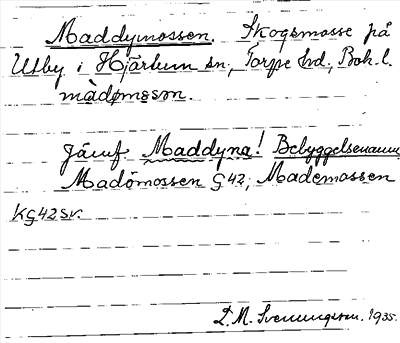 Maddymossen. Skogsmosse på
Utby i Hjärtum sn, Torpe hd, Boh. l.
màdmȯsȯn.
Jämf Maddyna! Bebyggelsenamn,
Madömossen G 42, Mademossen
KG42SV.
D. M. Svenungsson. 1935.